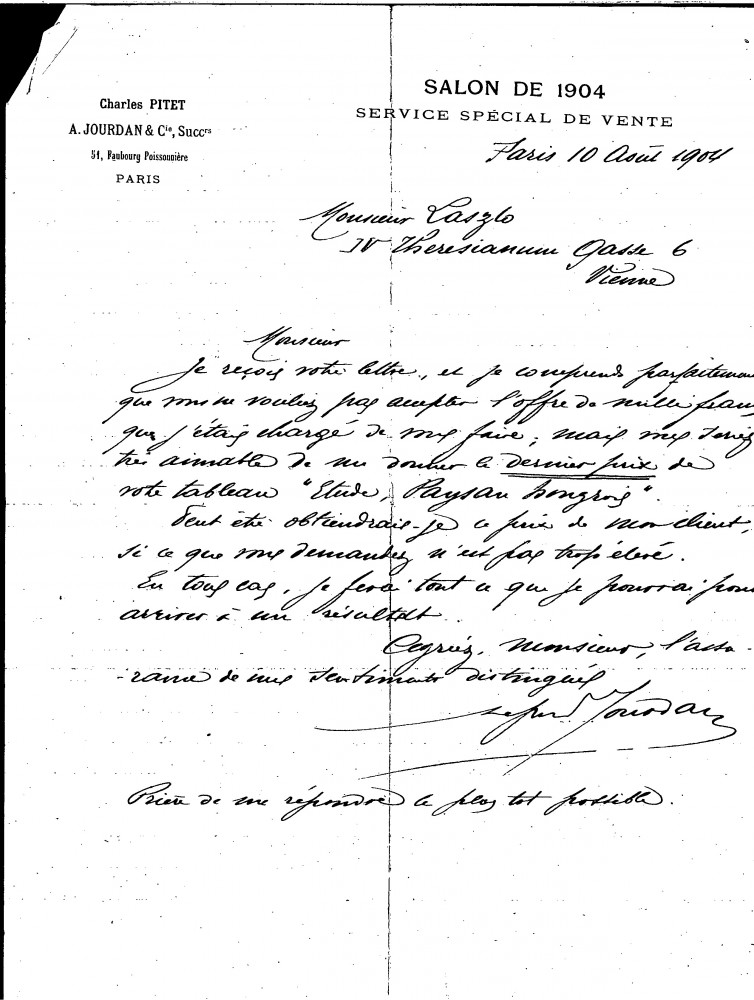 Charles PITET
A. JOURDAN & Cie, Succrs
51, Faubourg Poissonnière
PARIS
SALON DE 1904
SERVICE SPÉCIAL DE VENTE
Paris 10 Août 1904
Monsieur Laszlo
IV Theresianum Gasse 6
Vienne
Monsieur
Je reçois votre lettre, et je comprends parfaitement
que vous ne vouliez pas accepter l'offre de mille francs
que j'étais chargé de vous faire; mais vous seriez
très aimable de me donner le dernier prix de
votre tableau "Etude, Paysan hongrois".
Peut être obtiendrais-je ce prix de mon client,
si ce que vous demandez n'est pas trop élevé.
En tous cas, je ferai tout ce que je pourrai pour
arriver à un résultat.
Agréez, Monsieur, l'assu-
-rance de mes sentiments distingués
Jourdan
Prière de me répondre le plus tot possible.